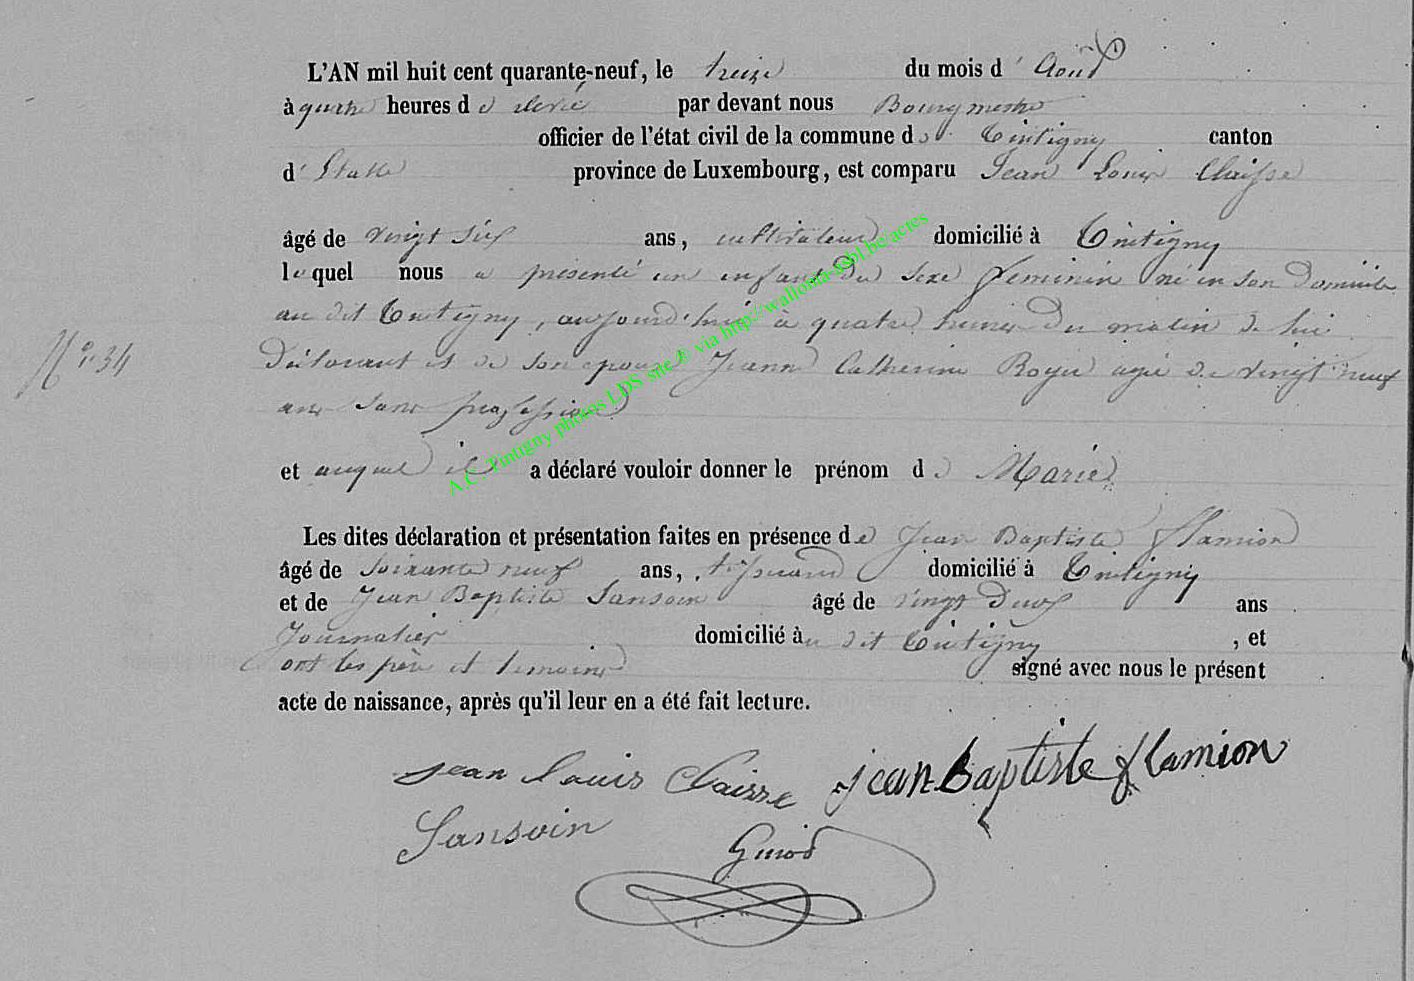 L'AN mil huit cent quarante-neuf, le treize du mois d'Août
à quatre heures de relevé par devant nous Bourgmestre
officier de l'état civil de la commune de Tintigny canton
d'Etalle province de Luxembourg, est comparu Jean Louis Claisse
âgé de vingt six ans, cultivateur domicilié à Tintigny
lequel nous a présenté un enfant du sexe feminin né en son Domicile
au dit Tintigny, aujourd'hui à quatre heures du matin de lui
N° 34
Déclarant et de son epouse Jeanne Catherine agée de vingt neuf
ans sans profession
et auquel il a déclaré vouloir donner le prénom de Marie
Les dites déclaration et présentation faites en présence de Jean Baptiste flamion
âgé de Soixante neuf ans, tisserand domicilié à Tintigny
et de Jean Baptiste Sansoin âgé de vingt Deux ans
Journalier domicilié au dit Tintigny, et
ont les père et temoins signé avec nous le présent
acte de naissance, après qu'il leur en a été fait lecture.
jean louis Claisse jean Baptiste flamion
Sansoin
A.C. Tintigny photos LDS site © via http://wallonia-asbl.be/actes